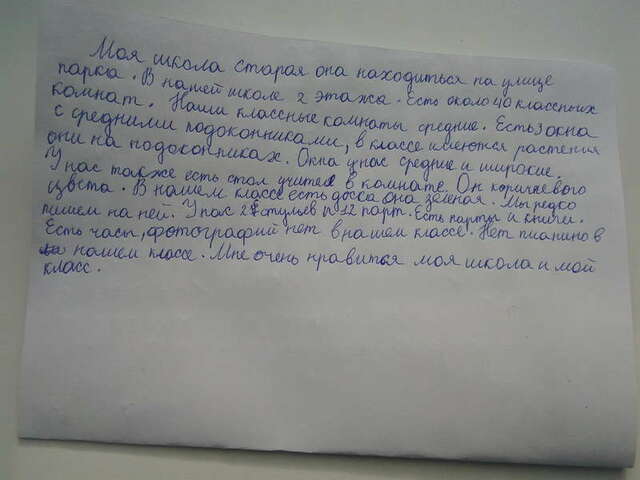 Моя школа старая она находиться на улице
парка. В нашей школе 2 этажа. Есть около 40 классных
комнат. Наши классные комнаты средние. Есть 3 окна
с средними подоконниками, в классе имеются растения
они на подоконниках. Окна у нас средние и широкие.
У нас также есть стол учителя в комнате. Он коричневого
цвета. В нашем классе есть доска она зеленая. Мы редко
пишем на ней. У нас стульев и 12 парт. Есть парты и книги.
Есть часы, фотографий нет в нашем классе. Нет пианино в
нашем классе. Мне очень нравиться моя школа и мой
класс.